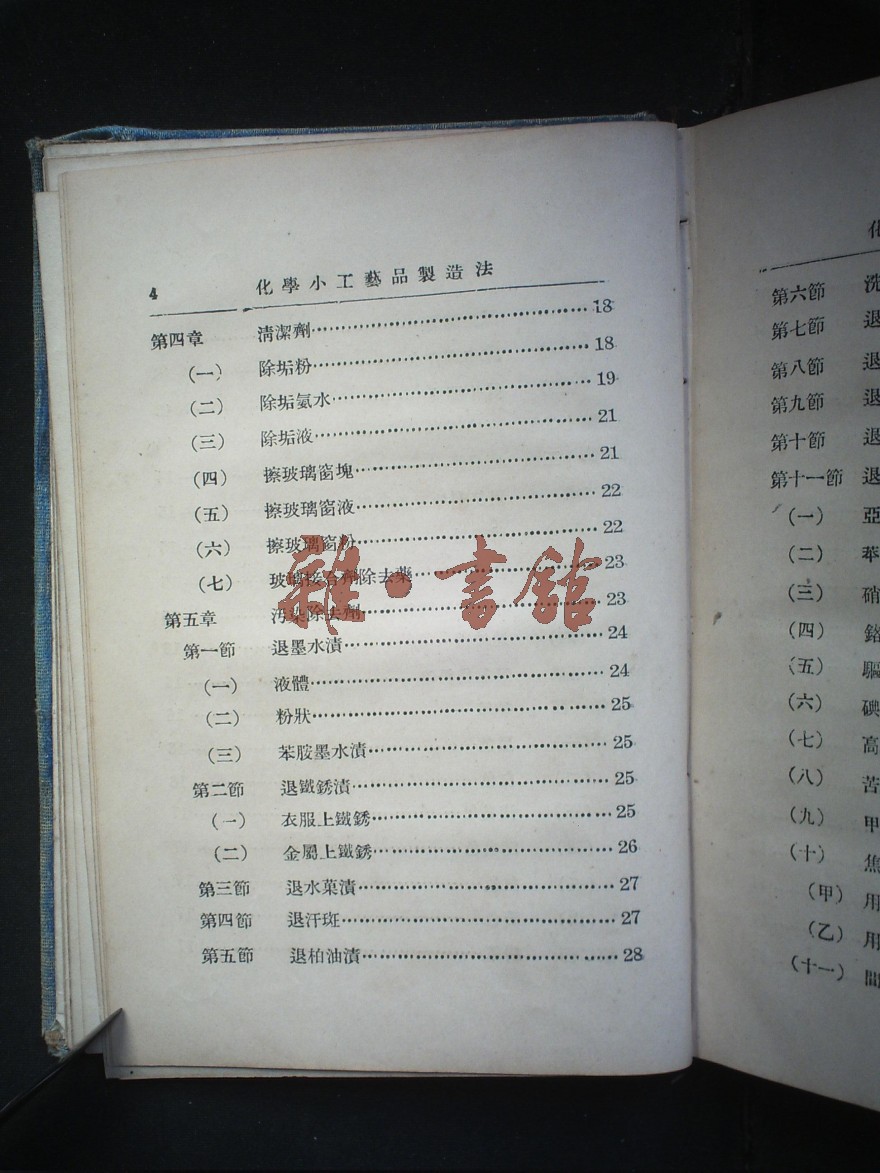 4 化學小工藝品製造法
第四章 清潔劑 18
(一) 除垢粉 18
(二) 除垢氨水 19
(三) 除垢液 21
(四) 擦玻璃窗塊 21
(五) 擦玻璃窗液 22
(六) 擦玻璃窗粉 22
(七) 玻璃接合劑除去藥 23
第五章 汚染除去劑 23
第一節 退墨水漬 24
(一) 液體 24
(二) 粉狀 25
(三) 苯胺墨水漬 25
第二節 退鐵銹漬 25
(一) 衣服上鐵銹 25
(二) 金屬上鐵銹 26
第三節 退水菓漬 27
第四節 退汗斑 27
第五節 退柏油漬 28
雜·書館
化
第六節 洗
第七節 退
第八節 退
第九節 退
第十節 退
第十一節 退
(一) 亞
(二)
(三) 硝
(四) 鉻
(五) 驅
(六) 碘
(七) 高
(八) 苦
(九) 甲
(十) 焦
(甲) 用
(乙) 用
(十一) 間